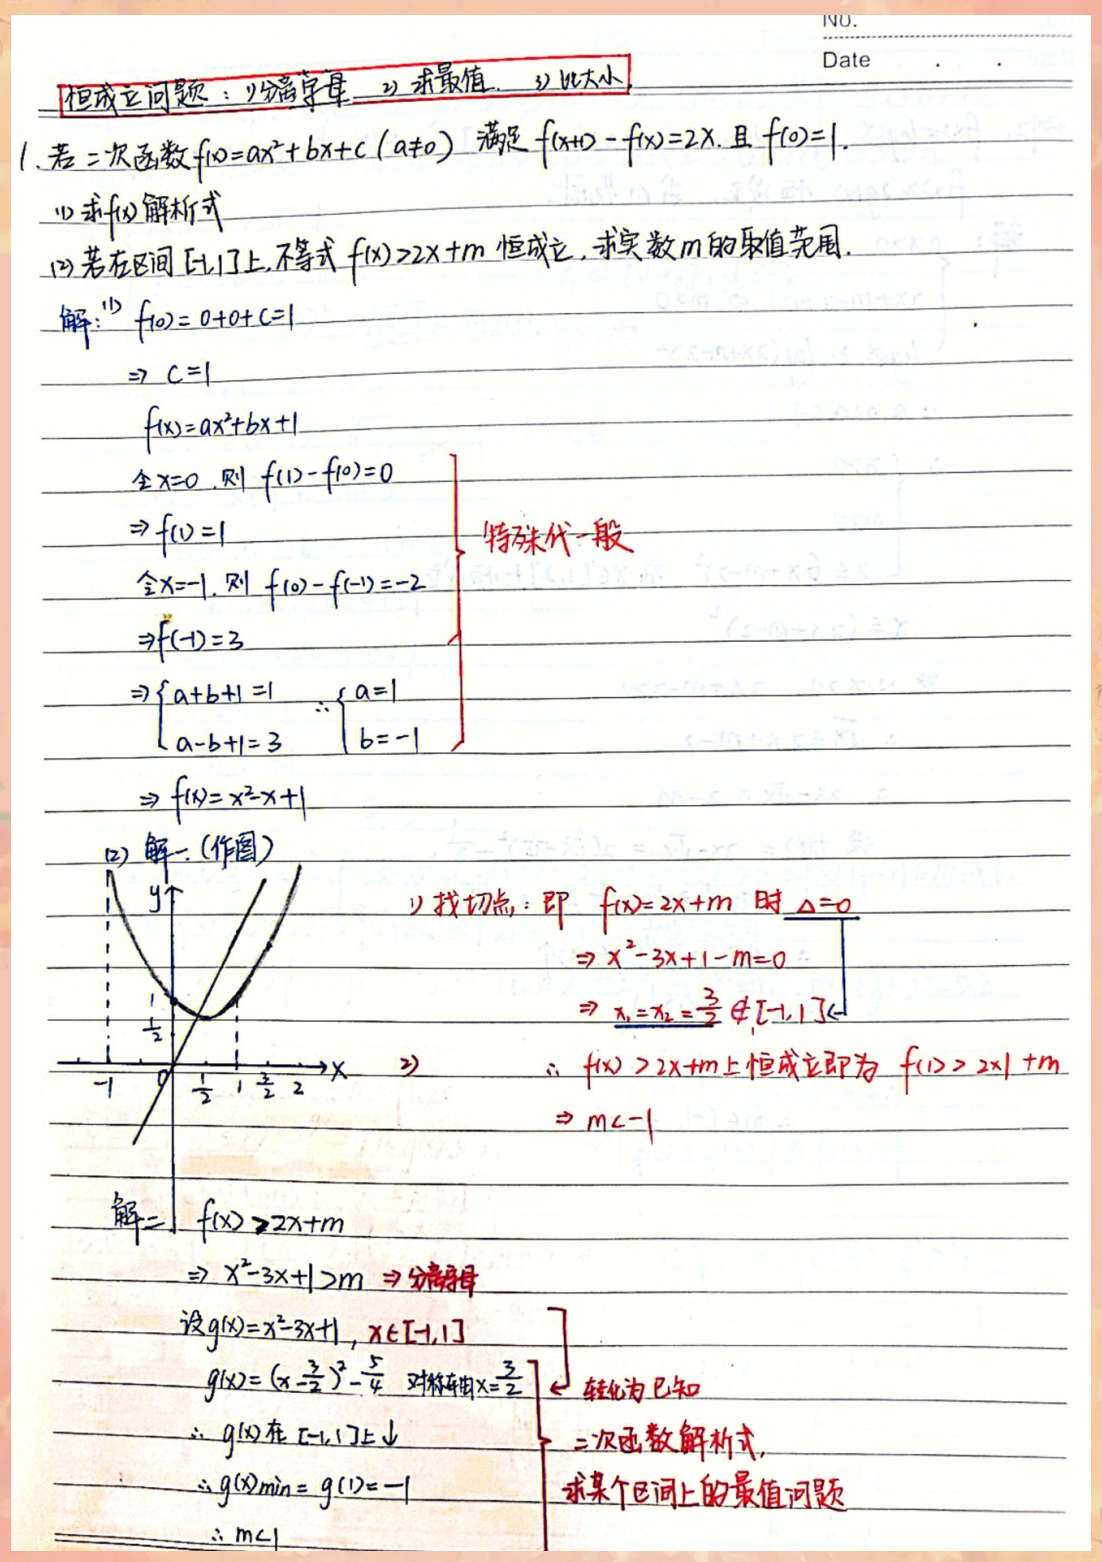 No.
Date . .
恒成立问题：1)分离字母 2) 求最值. 3) 比大小
1. 若二次函数f(x)=ax²+bx+c (a≠0) 满足 f(x+1)-f(x)=2x. 且 f(0)=1.
(1) 求f(x)解析式
(2) 若在区间[-1,1]上, 不等式 f(x)>2x+m 恒成立, 求实数m的取值范围.
解: (1) f(0)=0+0+c=1
⇒ c=1
f(x)=ax²+bx+1
令x=0, 则 f(1)-f(0)=0
⇒ f(1)=1
特殊代一般
令x=-1, 则 f(0)-f(-1)=-2
⇒f(-1)=3
⇒ { a+b+1=1 ∴ { a=1
a-b+1=3 b=-1
⇒ f(x)=x²-x+1
(2) 解一. (作图)
y
1) 找切点: 即 f(x)=2x+m 时 △=0
⇒ x²-3x+1-m=0
1
⇒ x₁=x₂=3/2 ∉[-1,1]
1/2
-1 0 1/2 1 3/2 2 x
2) ∴ f(x)>2x+m上恒成立即为 f(1)>2×1+m
⇒ m<-1
解二 f(x)>2x+m
⇒ x²-3x+1>m ⇒分离字母
设g(x)=x²-3x+1, x∈[-1,1]
g(x)=(x-3/2)²-5/4 对称轴x=3/2
转化为已知
∴ g(x)在[-1,1]上↓
二次函数解析式,
∴g(x)min=g(1)=-1
求某个区间上的最值问题
∴m<1